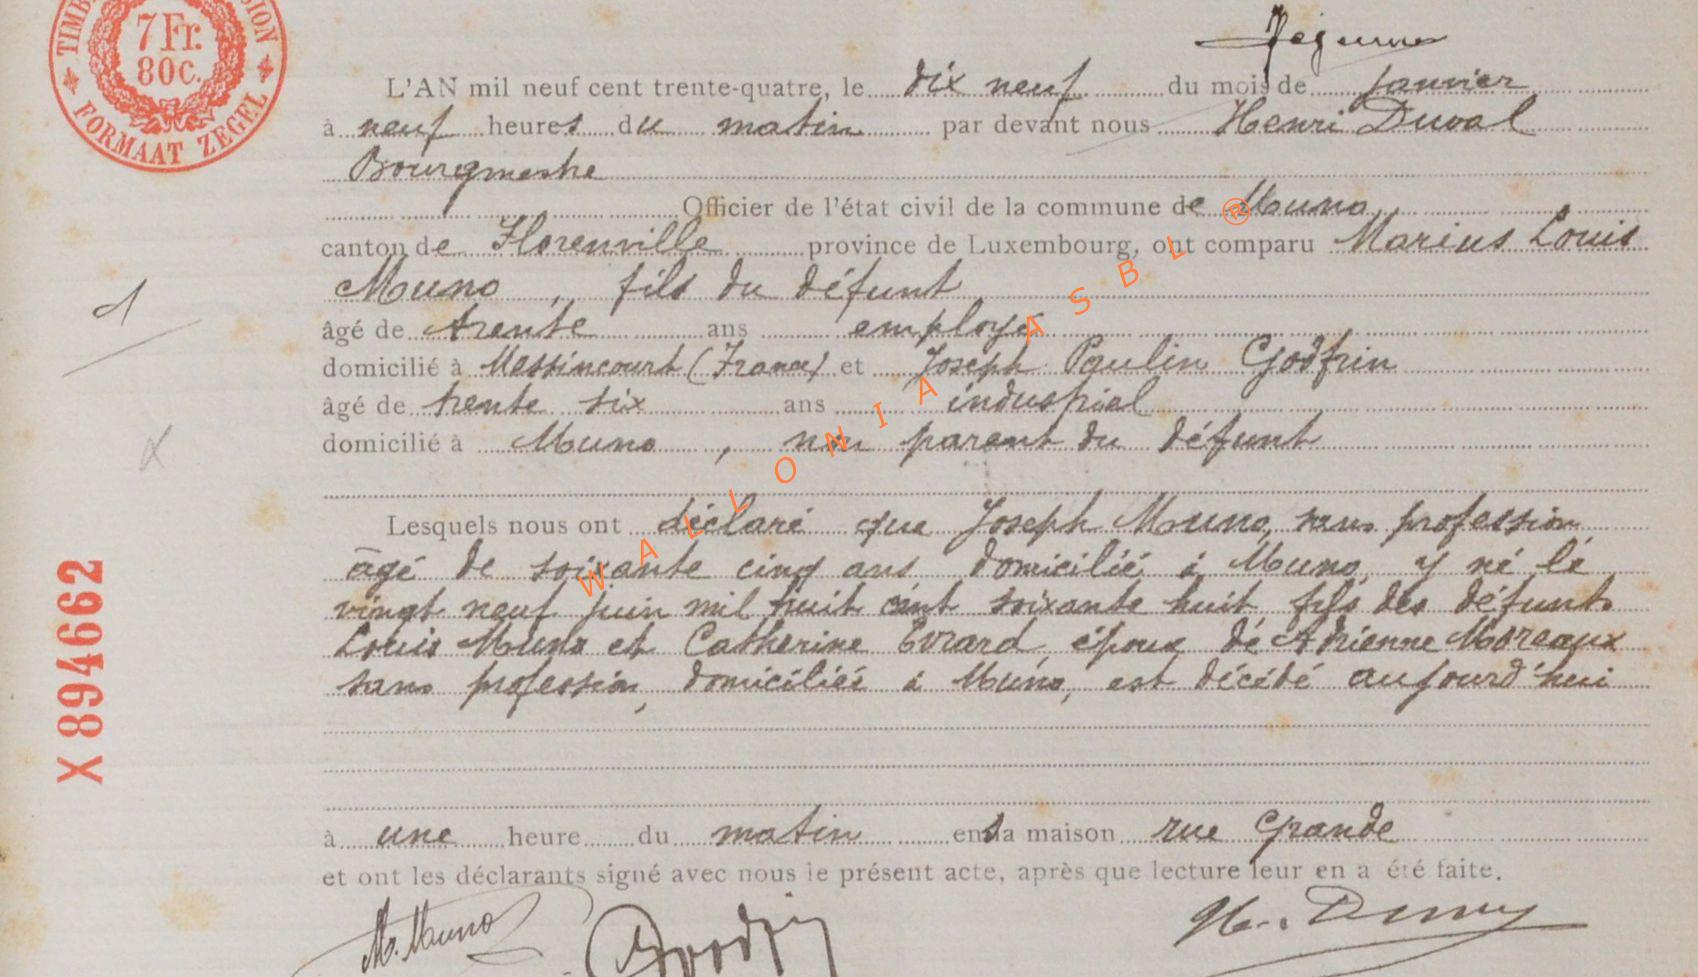 TIMB
SION
7 Fr.
80 C.
FORMAAT ZEGEL
L'AN mil neuf cent trente-quatre, le dix neuf du mois de janvier
à neuf heures du matin par devant nous Henri Duval
Bourgmestre
Officier de l'état civil de la commune de Muno
canton de Florenville province de Luxembourg, ont comparu Marius Louis
Muno, fils du défunt
âgé de trente ans employé
domicilié à Messincourt (France) et Joseph Paulin Godfrin
âgé de trente six ans industriel
domicilié à Muno, non parent du défunt
Lesquels nous ont déclaré que Joseph Muno, sans profession
âgé de soixante cinq ans domicilié à Muno, y né le
vingt neuf juin mil huit cent soixante huit, fils des défunts
Louis Muno et Catherine Evrard, époux de Adrienne Moreaux
sans profession, domiciliée à Muno, est décédé aujourd'hui
à une heure du matin en sa maison rue Grande
et ont les déclarants signé avec nous le présent acte, après que lecture leur en a été faite.
M. Muno
X 894662
WALLONIA ASBL ®